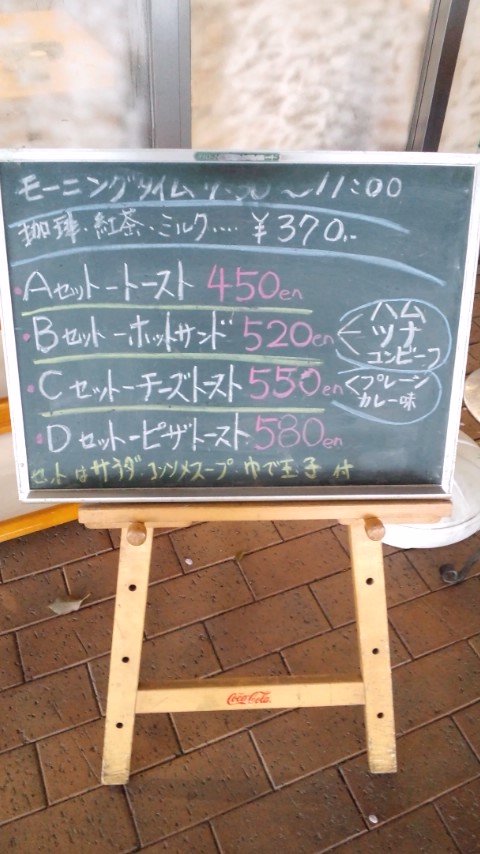 モーニングタイム 7:30 〜11:00
珈琲・紅茶・ミルク.... ¥370.-
・Aセットートースト 450en
・Bセットーホットサンド 520en < ハム ツナ コンビーフ
・Cセットーチーズトースト 550en < プレーン カレー味
・Dセットーピザトースト 580en
セットはサラダ コンソメスープ ゆで玉子 付
Coca-Cola